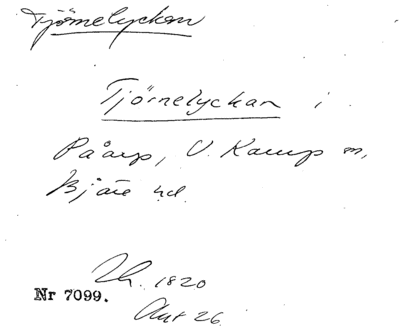 Tjörnelyckan
Tjörnelyckan i
Påarp, V. Karup sn,
Bjäre hd.
Lh. 1820
Nr 7099.
Akt 26